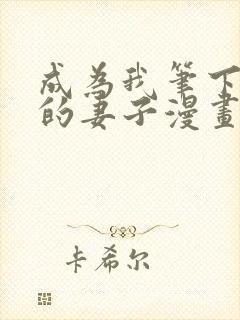 成為我筆下
的妻子漫畫
卡希尔